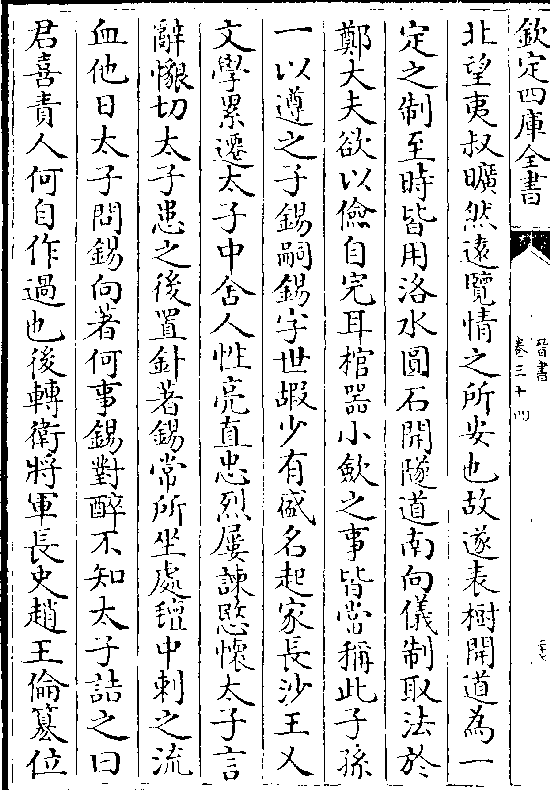 欽定四庫全書
晉書
卷三十四
北望夷叔曠然遠覽情之所安也故遂表樹開道為一
定之制至時皆用洛水圓石開隧道南向儀制取法於
鄭大夫欲以儉自完耳棺器小歛之事皆當稱此子孫
一以遵之子錫嗣錫字世嘏少有盛名起家長沙王乂
文學累遷太子中舍人性亮直忠烈屢諫愍懷太子言
辭懇切太子患之後置針著錫常所坐處氊中刺之流
血他日太子問錫向著何事錫對醉不知太子詰之曰
君喜責人何自作過也後轉衛將軍長史趙王倫篡位